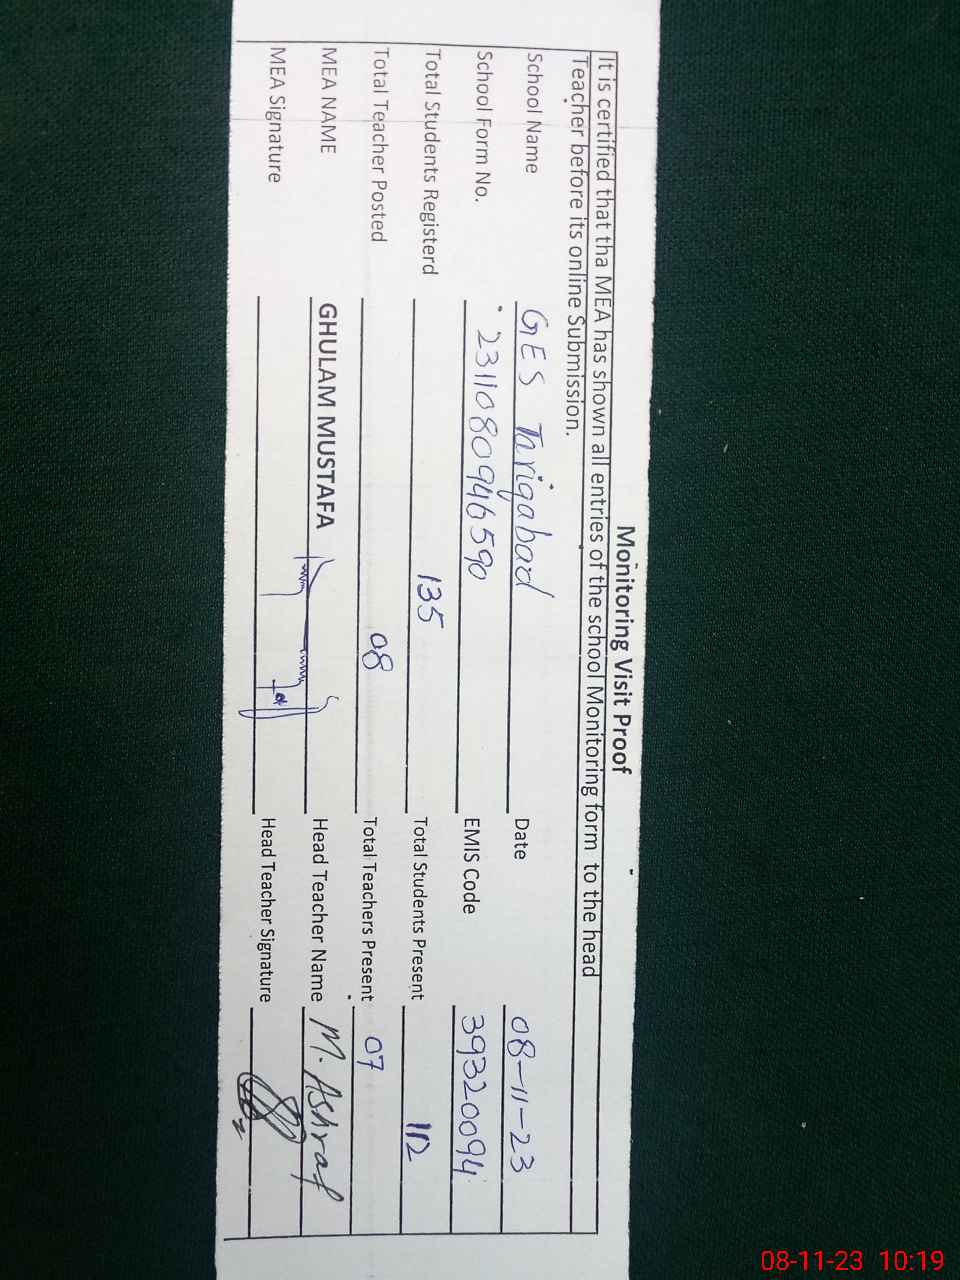 Monitoring Visit Proof
It is certified that tha MEA has shown all entries of the school Monitoring form to the head
Teacher before its online Submission.
School Name GES Tariqabad Date 08-11-23
School Form No. 231108094659 0 EMIS Code 39320094
Total Students Registerd 135 Total Students Present 112
Total Teacher Posted 08 Total Teachers Present 07
MEA NAME GHULAM MUSTAFA Head Teacher Name M. Ashraf
MEA Signature Head Teacher Signature
08-11-23 10:19